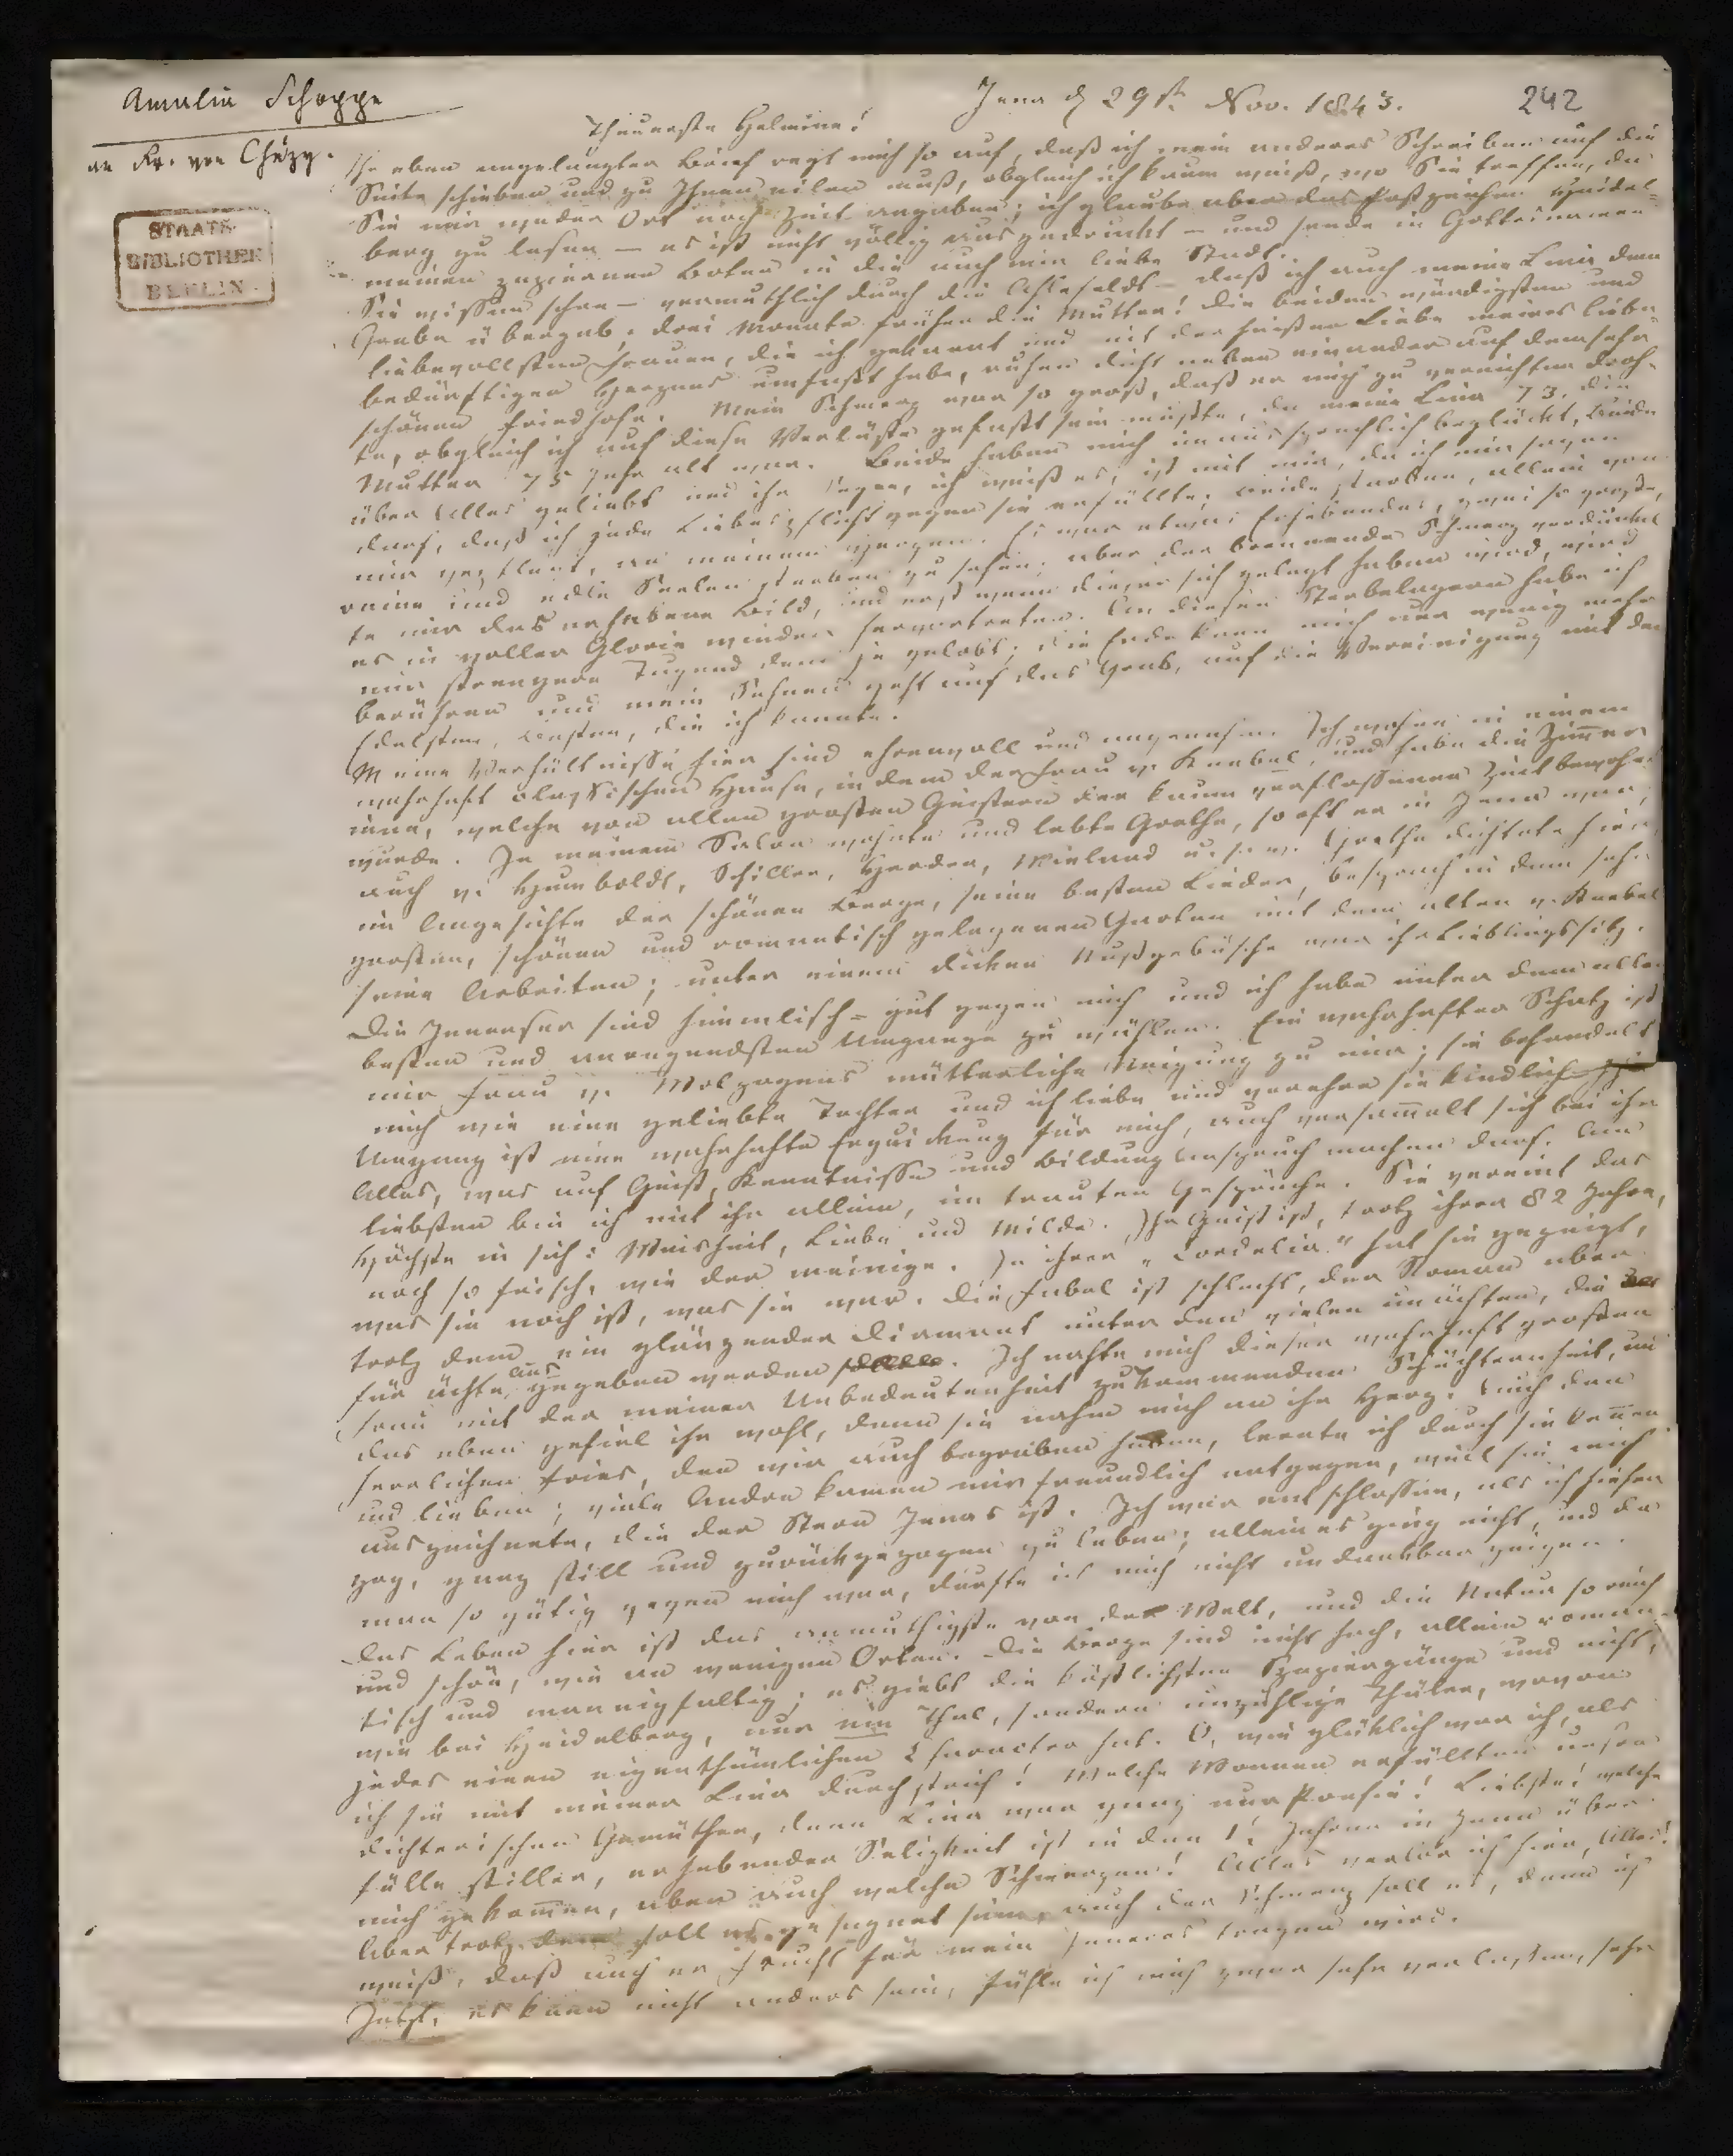 Amalia Schoppe
an Fr. von Chézy.
STAATS-
BIBLIOTHEK
BERLIN
Jena d 29st. Nov. 1843.
242
Theuerste Helmina!
Ihr eben angelangter Brief regt mich so auf, daß ich mein anderes Schreiben auf die
Seite schieben und zu Ihnen eilen muß, obgleich ich kaum weiß, wo Sie treffen, da
Sie mir weder Ort noch Zeit angaben; ich glaube aber das Postzeichen Heidel-
berg zu lesen – es ist nicht völlig ausgedruckt – und sende in Gottesnamen
meinen papiernen Boten in die auch mir liebe Stadt.
Sie wissen schon – vermuthlich durch die – daß ich auch meine Lina dem
Grabe übergab, drei Monate früher die Mutter! Die beiden würdigsten und
liebevollsten Frauen, die ich gekannt und mit der heißen Liebe meines liebe-
bedürftigen Herzens umfaßt habe, ruhen dicht neben einander auf dem sehr
schönen Friedhofe. Mein Schmerz war so groß, daß er mich zu vernichten droh-
te, obgleich ich auf diese Verluste gefaßt sein mußte, da meine Lina 73, die
Mutter 75 Jahr alt war. Beide haben mich unaussprechlich beglückt, beide
über Alles geliebt und ihr Segen, ich weiß es, ist mit mir, da ich mir sagen
darf, daß ich jede Liebespflicht gegen sie erfüllte; beide starben, allein von
mir gepflegt, an meinem Herzen. Es war etwas Erhebendes, zwei so große,
reine und edle Seelen sterben zu sehen; aber der brennende Schmerz verdunkel-
te mir das erhabene Bild, und erst wenn dieser sich gelegt haben wird, wird
es in voller Glorie wieder hervortreten. An diesen Sterbelagern habe ich
mir strengere Tugend denn je gelobt; die Erde kann mich nur wenig mehr
berühren und mein Sehnen geht auf das Grab, auf die Vereinigung mit den
Edelsten, Besten, die ich kannte.
Meine Verhältnisse hier sind ehrenvoll und angenehm. Ich wohne in einem
wahrhaft classischen Hause, in dem der Frau v. Knebel, und habe die Zimmer
inne, welche von allen großen Geistern der kaum verflossenen Zeit bewohnt
wurde. In meinem Salon wohnte und lebte Goethe, so oft er in Jena war,
auch v. Humboldt, Schiller, Herder, Wieland u. s. w. Goethe dichtete hier,
im Angesichte der schönen Berge, seine besten Lieder, besprach in dem sehr
großen, schönen und romantisch gelegenen Garten mit dem alten v. Knebel
seine Arbeiten; unter einem dicken Nußgebüsche war ihr Lieblingssitz.
Die Jenenser sind himmlisch-gut gegen mich und ich habe unter dem aller-
besten und anregendsten Umgange zu wählen. Ein wahrhafter Schatz ist
mir Frau v. Wolzogens mütterliche Neigung zu mir; sie behandelt
mich wie eine geliebte Tochter und ich liebe und verehre sie kindlich.
Umgang ist eine wahrhafte Erquickung für mich, auch versammelt sich bei ihr
Alles, was auf Geist, Kenntnisse und Bildung Anspruch machen darf. Am
liebsten bin ich mit ihr allein, im trauten Gespräche. Sie vereint das
Höchste in sich: Weisheit, Liebe und Milde. Ihr Geist ist, trotz ihrer 82 Jahre,
noch so frisch, wie der meinige. In ihrer „Cordelia" hat sie gezeigt,
was sie noch ist, was sie war. Die Fabel ist schlecht, der Roman aber
trotz dem ein glänzender Diamant unter den vielen unächten, die
für ächte ausgegeben werden. Ich nahte mich dieser wahrhaft großen
Frau mit der meiner Unbedeutenheit zukommenden Schüchternheit, und
das eben gefiel ihr wohl, denn sie nahm mich an ihr Herz. Auch den
herrlichen Fries, den wir auch begraben haben, lernte ich durch sie kennen
und lieben; viele Andre kamen mir freundlich entgegen, weil sie mich
auszeichnete, die der Stern Jenas ist. Ich war entschlossen, als ich hieher
zog, ganz still und zurückgezogen zu leben; allein es ging nicht, und da
man so gütig gegen mich war, durfte ich mich nicht undankbar zeigen.
Das Leben hier ist das anmuthigste von der Welt, und die Natur so reich
und schön, wie an wenigen Orten. Die Berge sind nicht hoch, allein roman-
tisch und mannigfaltig; es giebt die köstlichsten Spaziergänge und nicht,
wie bei Heidelberg, nur ein Thal, sondern unzählige Thäler, wovon
jedes einen eigenthümlichen Character hat. O, wie glücklich war ich, als
ich sie mit meiner Lina durchstrich! Welche Wonnen erfüllten unsere
dichterischen Gemüther, denn Lina war ganz nur Poesie! Liebste! welche
Fülle stiller, erhebender Seligkeit ist in den 1½ Jahren in Jena über
mich gekommen, aber auch welche Schmerzen! Alles verlor ich hier, Alles!
Aber trotz dem soll es gesegnet sein, auch der Schmerz soll es, denn ich
weiß, daß auch er Frucht für mein Inneres tragen wird.
Jetzt, es kann nicht anders sein, fühle ich mich zwar sehr verlassen, sehr